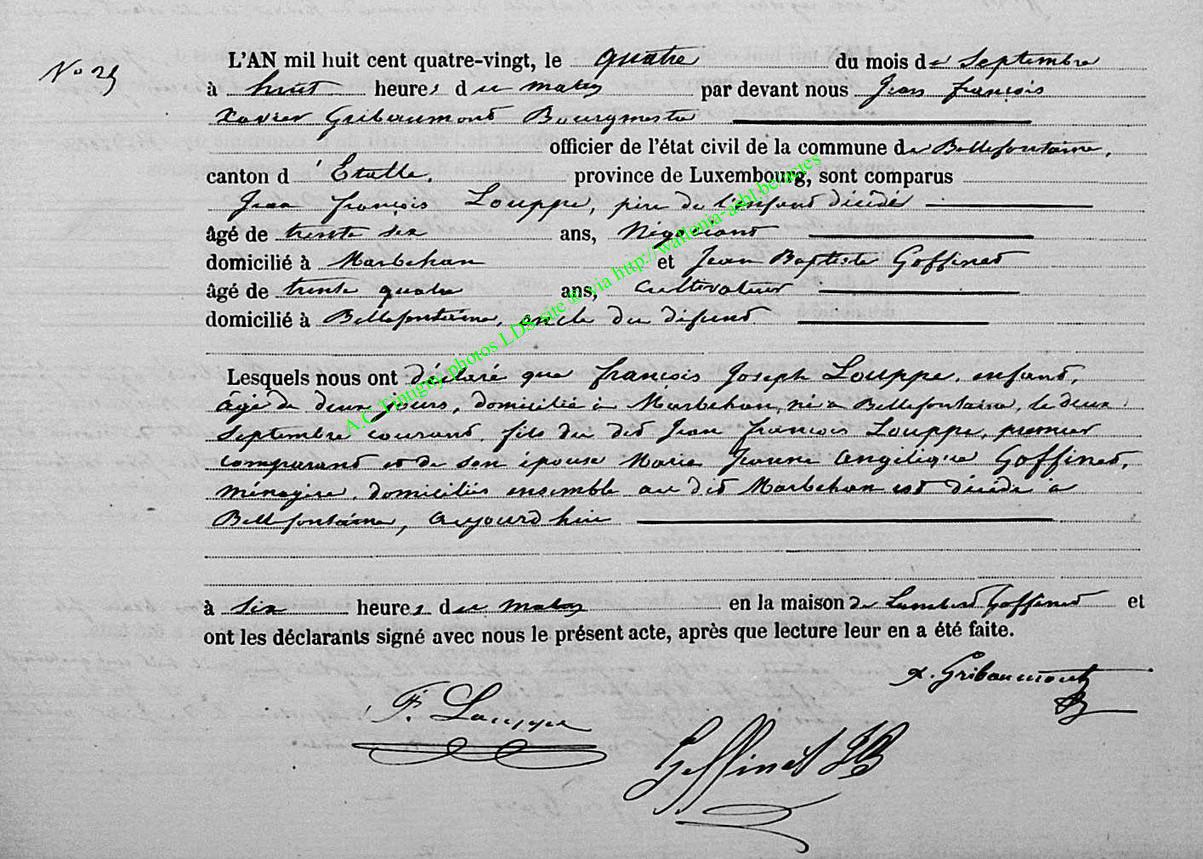 N° 25
L'AN mil huit cent quatre-vingt, le quatre du mois de Septembre
à huit heures du matin par devant nous Jean François
Xavier Gribaumont Bourgmestre
officier de l'état civil de la commune de Bellefontaine,
canton d'Etalle, province de Luxembourg, sont comparus
Jean François Louppe, père de l'enfant décédé
âgé de trente six ans, Négociant
domicilié à Marbehan et Jean Baptiste Goffinet
âgé de trente quatre ans, cultivateur
domicilié à Bellefontaine, oncle du défunt.
Lesquels nous ont déclaré que François Joseph Louppe, enfant,
âgé de deux jours, domicilié à Marbehan, né à Bellefontaine, le deux
Septembre courant, fils du dit Jean François Louppe, premier
comparant et de son épouse Marie Jeanne Angélique Goffinet,
ménagère, domiciliés ensemble au dit Marbehan est décédé à
Bellefontaine, aujourd'hui
à six heures du matin en la maison de Lambert Goffinet et
ont les déclarants signé avec nous le présent acte, après que lecture leur en a été faite.
X. Gribaumont
F. Louppe
Goffinet JB
A.C. Tintigny photos LDS site & via http://wallonia-asbl.be/actes